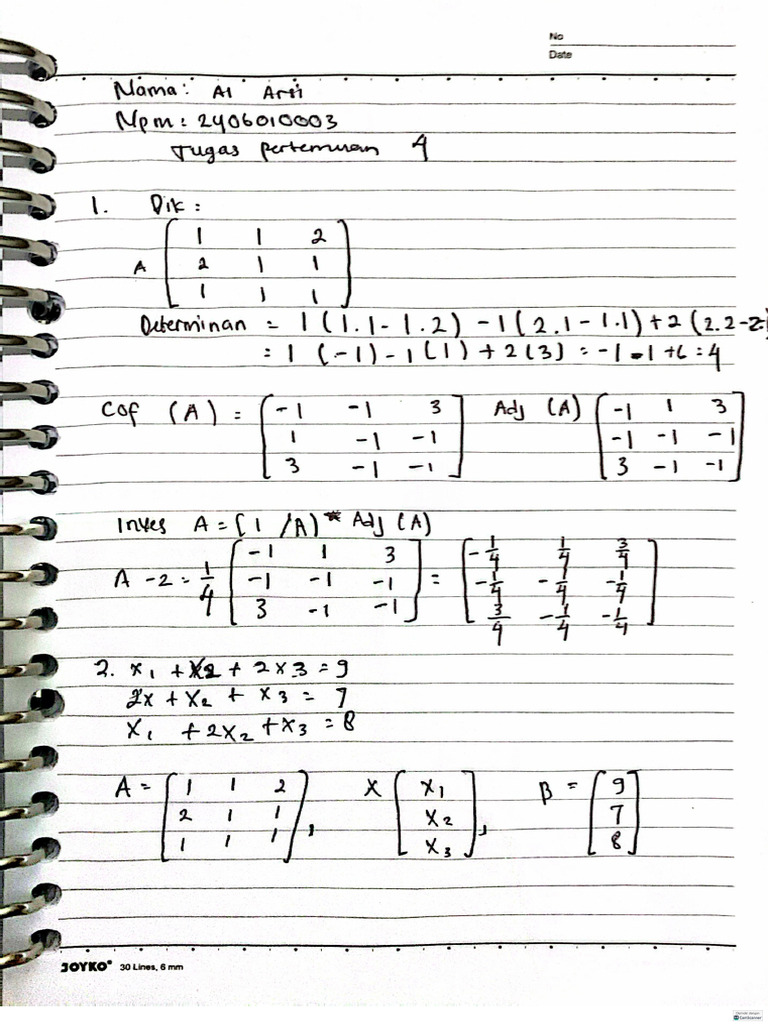 No
Date
Nama: Al Arsi
Npm: 2406010003
Tugas pertemuan 4
1. Dik:
A [ 1 1 2
2 1 1
1 1 1 ]
Determinan = 1 (1.1 - 1.2) - 1 (2.1 - 1.1) + 2 (2.2 - 2.
= 1 (-1) - 1 (1) + 2 (3) = -1 - 1 + 6 = 4
Cof (A) = [ -1 -1 3 Adj (A) [ -1 1 3
1 -1 -1 -1 -1 -1
3 -1 -1 ] 3 -1 -1 ]
Inves A = [1 /A) * Adj (A)
A -2 = 1/4 [ -1 1 3 = [ -1/4 1/4 3/4
-1 -1 -1 -1/4 -1/4 -1/4
3 -1 -1 ] 3/4 -1/4 -1/4 ]
2. x1 + x2 + 2x3 = 9
2x + x2 + x3 = 7
x1 + 2x2 + x3 = 8
A = [ 1 1 2 X [ x1 B = [ 9
2 1 1 x2 7
1 1 1 ], x3 ], 8 ]
JOYKO® 30 Lines, 6 mm
CamScanner